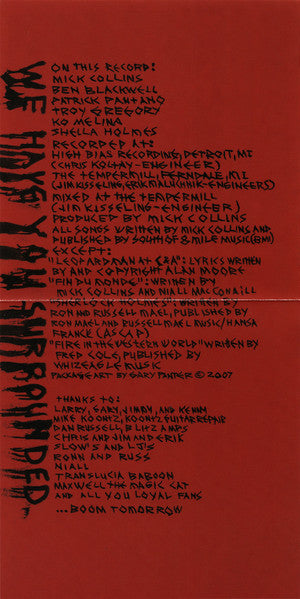 WE HAVE YOU SURROUNDED
ON THIS RECORD:
MICK COLLINS
BEN BLACKWELL
PATRICK PANTANO
TROY GREGORY
KO MELINA
SHELLA HOLMES
RECORDED AT:
HIGH BIAS RECORDING, DETROIT, MI
(CHRIS KOLTAY-ENGINEER)
THE TEMPERMILL, FERNDALE, MI
(JIM KISSELING, ERIK MALUCHNIK-ENGINEERS)
MIXED AT THE TEMPERMILL
(JIM KISSELING-ENGINEER)
PRODUCED BY MICK COLLINS
ALL SONGS WRITTEN BY MICK COLLINS AND
PUBLISHED BY SOUTH OF 8 MILE MUSIC (BMI)
EXCEPT:
"LEOPARDMAN AT C&A": LYRICS WRITTEN
BY AND COPYRIGHT ALAN MOORE
"FIN DU MONDE": WRITTEN BY
MICK COLLINS AND NIALL MACCONAILL
"SHERLOCK HOLMES": WRITTEN BY
RON AND RUSSELL MAEL, PUBLISHED BY
RON MAEL AND RUSSELL MAEL MUSIC/HANSA
FRANCE (ASCAP)
"FIRE IN THE WESTERN WORLD" WRITEN BY
FRED COLE, PUBLISHED BY
WHIZEAGLE MUSIC
PACKAGE ART BY GARY PANTER © 2007
THANKS TO:
LARRY, GARY, JIMBY, AND KENNY
MIKE KOONTZ, KOONTZ GUITAR REPAIR
DAN RUSSELL, BLITZ AMPS
CHRIS AND JIM AND ERIK
SLOW'S AND LJ'S
RONN AND RUSS
NIALL
TRANSLUCIA BABOON
MAXWELL THE MAGIC CAT
AND ALL YOU LOYAL FANS
...BOOM TOMORROW